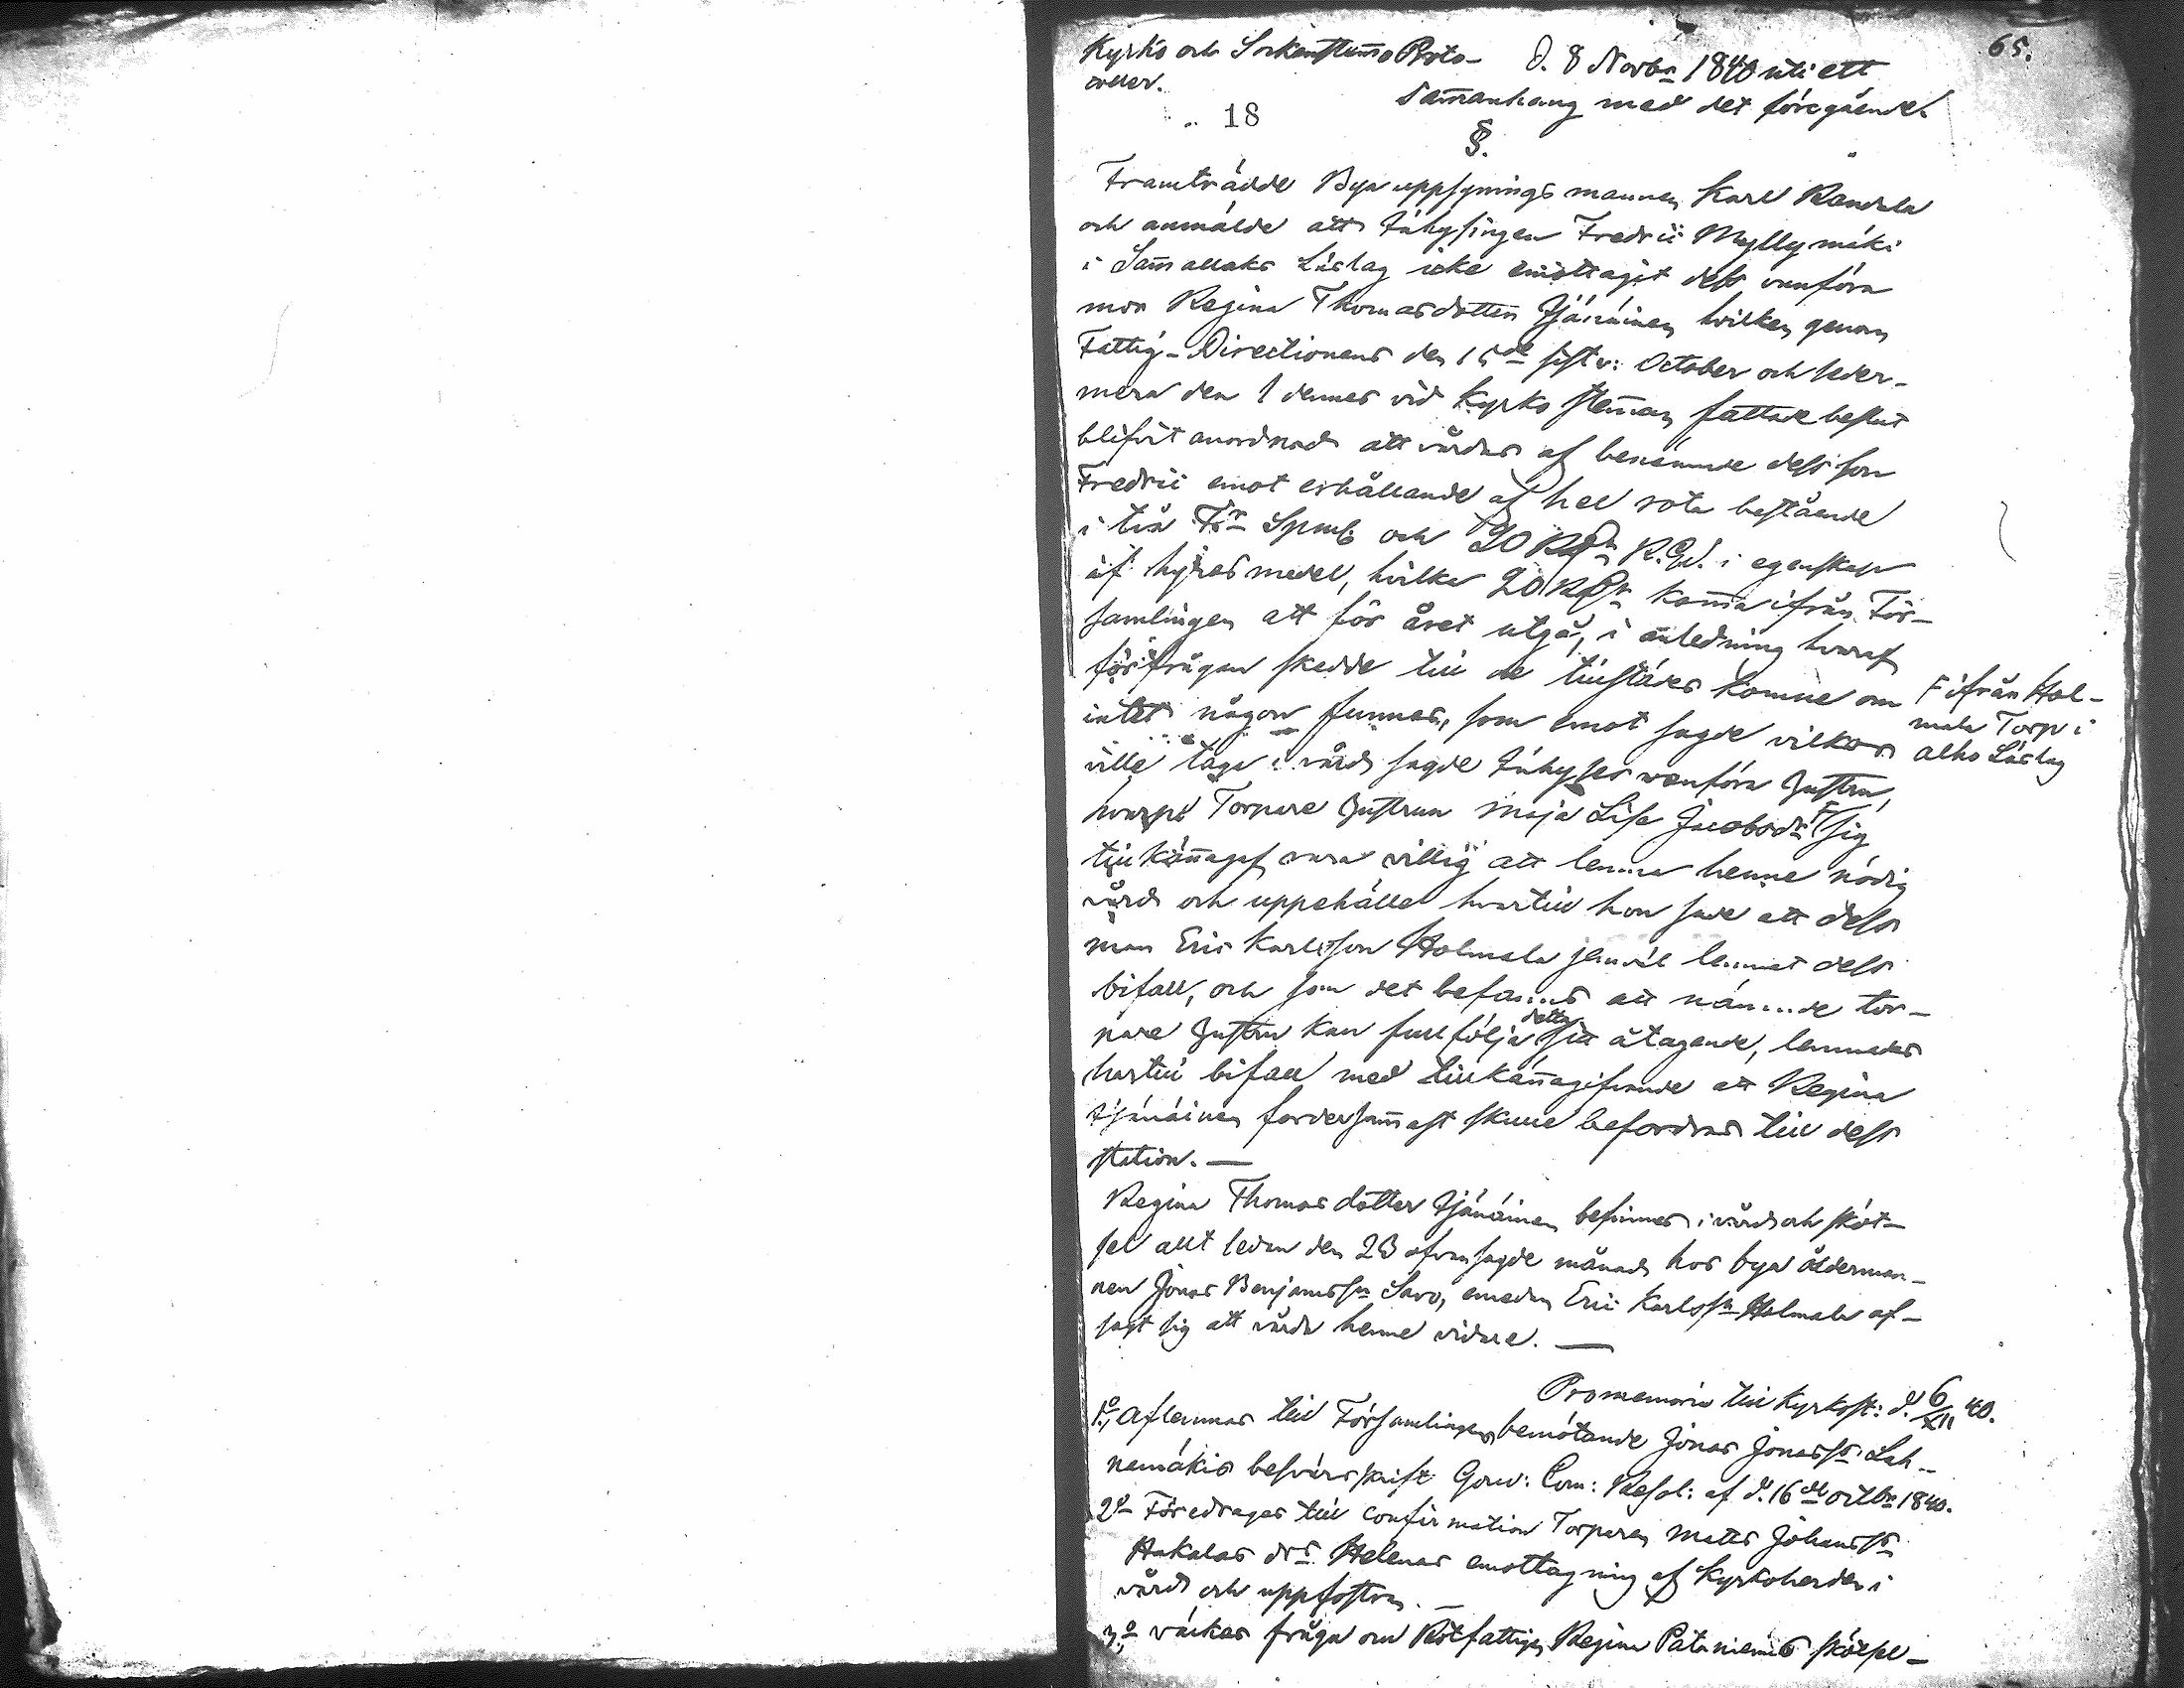 65.
Kyrko och Sockenstämo Proto-
coller.
d. 8 Novbr 1840 uti ett
samanhang med det föregående.
18
§.
Framträdde Byauppsynings mannen Karl Randala
och anmälde att Inhysingen Fredric Myllymäki
i Samallaks Läslag icke emottagit dess vanföra
mor Regina Thomasdotter Tjänäinen hvilken genom
Fattig-Directionens den 15de sistv: October och seder-
mera den 1 dennes vid Kyrko stäman fattade beslut
blifvit anordnad att vårdas af benämnde dess son
Fredric emot erhållande af hel rota bestående
i tio Tr Spml och 20 Rbr R.Gd. i egenskap
af hyres medel, hvilka 20 Rbr koma ifrån För-
samlingen att för året utgå, i anledning hvaraf
förfrågan skedde till de tillstädes komne om
intet någon funnes, som emot sagde vilkor
ville taga i vård sagde Inhyses vanföra hustru,
hvarpå Torpare hustrun Maja Lisa Jacobsdr F sig
tillkänagaf vara villig att lemna henne nödig
vård och uppehälle hvartill hon sade att dess
man Eric Karlsson Holmala jemväl lemnat dess
bifall, och som det befanns att nämnde tor-
pare hustru kan fullfölja detta sitt åtagande, lemnades
hartill bifall med tillkänagifvande att Regina
Tjänäinen fordersamast skulle befordras till dess
station. —
F ifrån Hol-
mala Torp i
alho Läslag
Regina Thomasdotter Tjänäinen befinnes i vård och sköt-
sel allt sedan den 23 ofvansagde månad hos bya ålderman-
nen Jonas Benjamsson Savo, emedan Eric Karlsson Holmala af-
sagt sig att vårda henne vidare. —
Promemoria till Kyrkost: d. 6/XII 40.
1o, Aflemnas till Församlingens bemötande Jonas Jonasson Lah-
nemäkis besvärsskrift Gouv: Com: Resol: af d. 16de octbr 1840.
2o Föredrages till confirmation Torparen Matts Johansson
Hakalas drs Helenas emottagning af Kyrkoherden i
vård och uppfostran. —
3o, väckes fråga om Rotfattigen Regina Pataniemis skötsel-